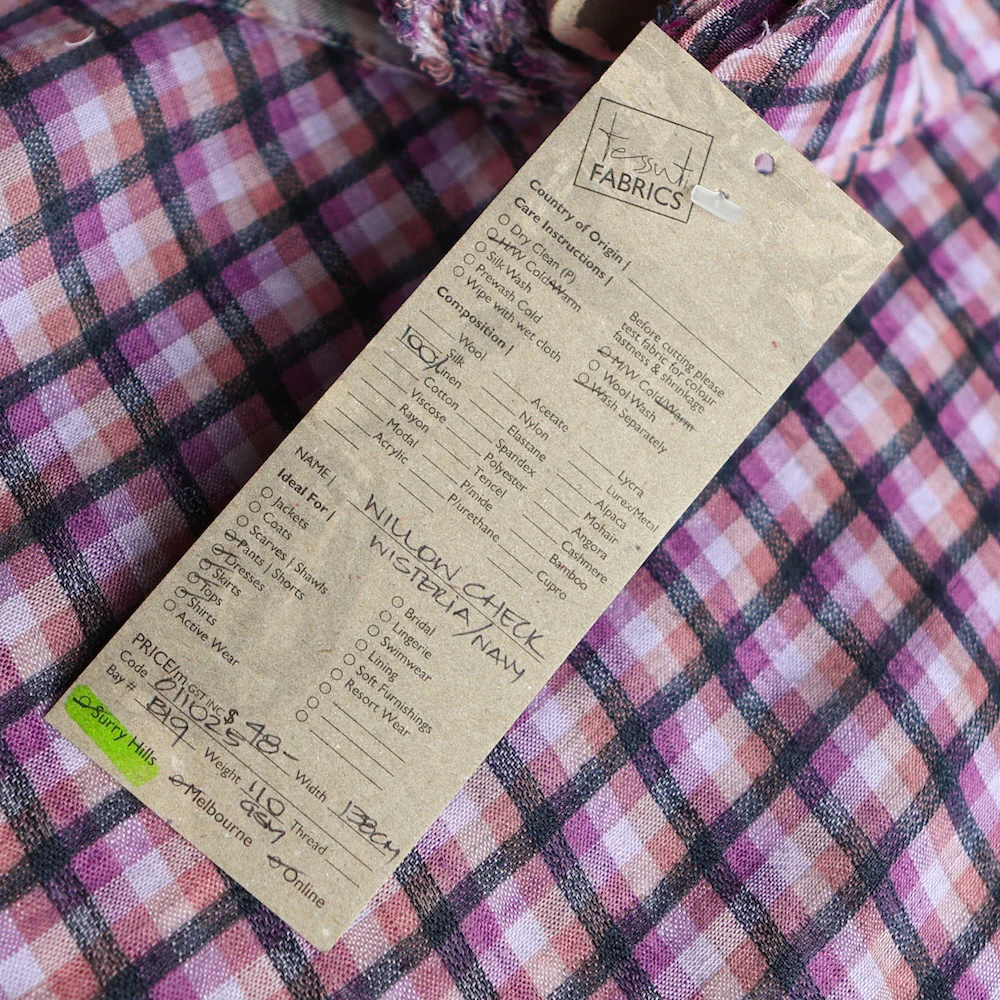 tessuti
FABRICS
Country of Origin |
Care Instructions |
Dry Clean (P)
H/W Cold-Warm
Silk Wash
Prewash Cold
Wipe with wet cloth
Before cutting please
test fabric for colour
fastness & shrinkage
M/W Cold/Warm
Wool Wash
Wash Separately
Composition |
Wool
Silk
100% Linen
Cotton
Viscose
Rayon
Modal
Acrylic
Acetate
Nylon
Elastane
Spandex
Polyester
Tencel
P/mide
P/urethane
Lycra
Lurex/Metal
Alpaca
Mohair
Angora
Cashmere
Bamboo
Cupro
NAME | WILLOW CHECK
WISTERIA/NAVY
Ideal For |
Jackets
Coats
Scarves | Shawls
Pants | Shorts
Dresses
Skirts
Tops
Shirts
Active Wear
Bridal
Lingerie
Swimwear
Lining
Soft Furnishings
Resort Wear
PRICE/m GST INC $ 48-
Code 011025 Width 138CM
Bay # B19 Weight 110 GSM Thread
Surry Hills Melbourne Online